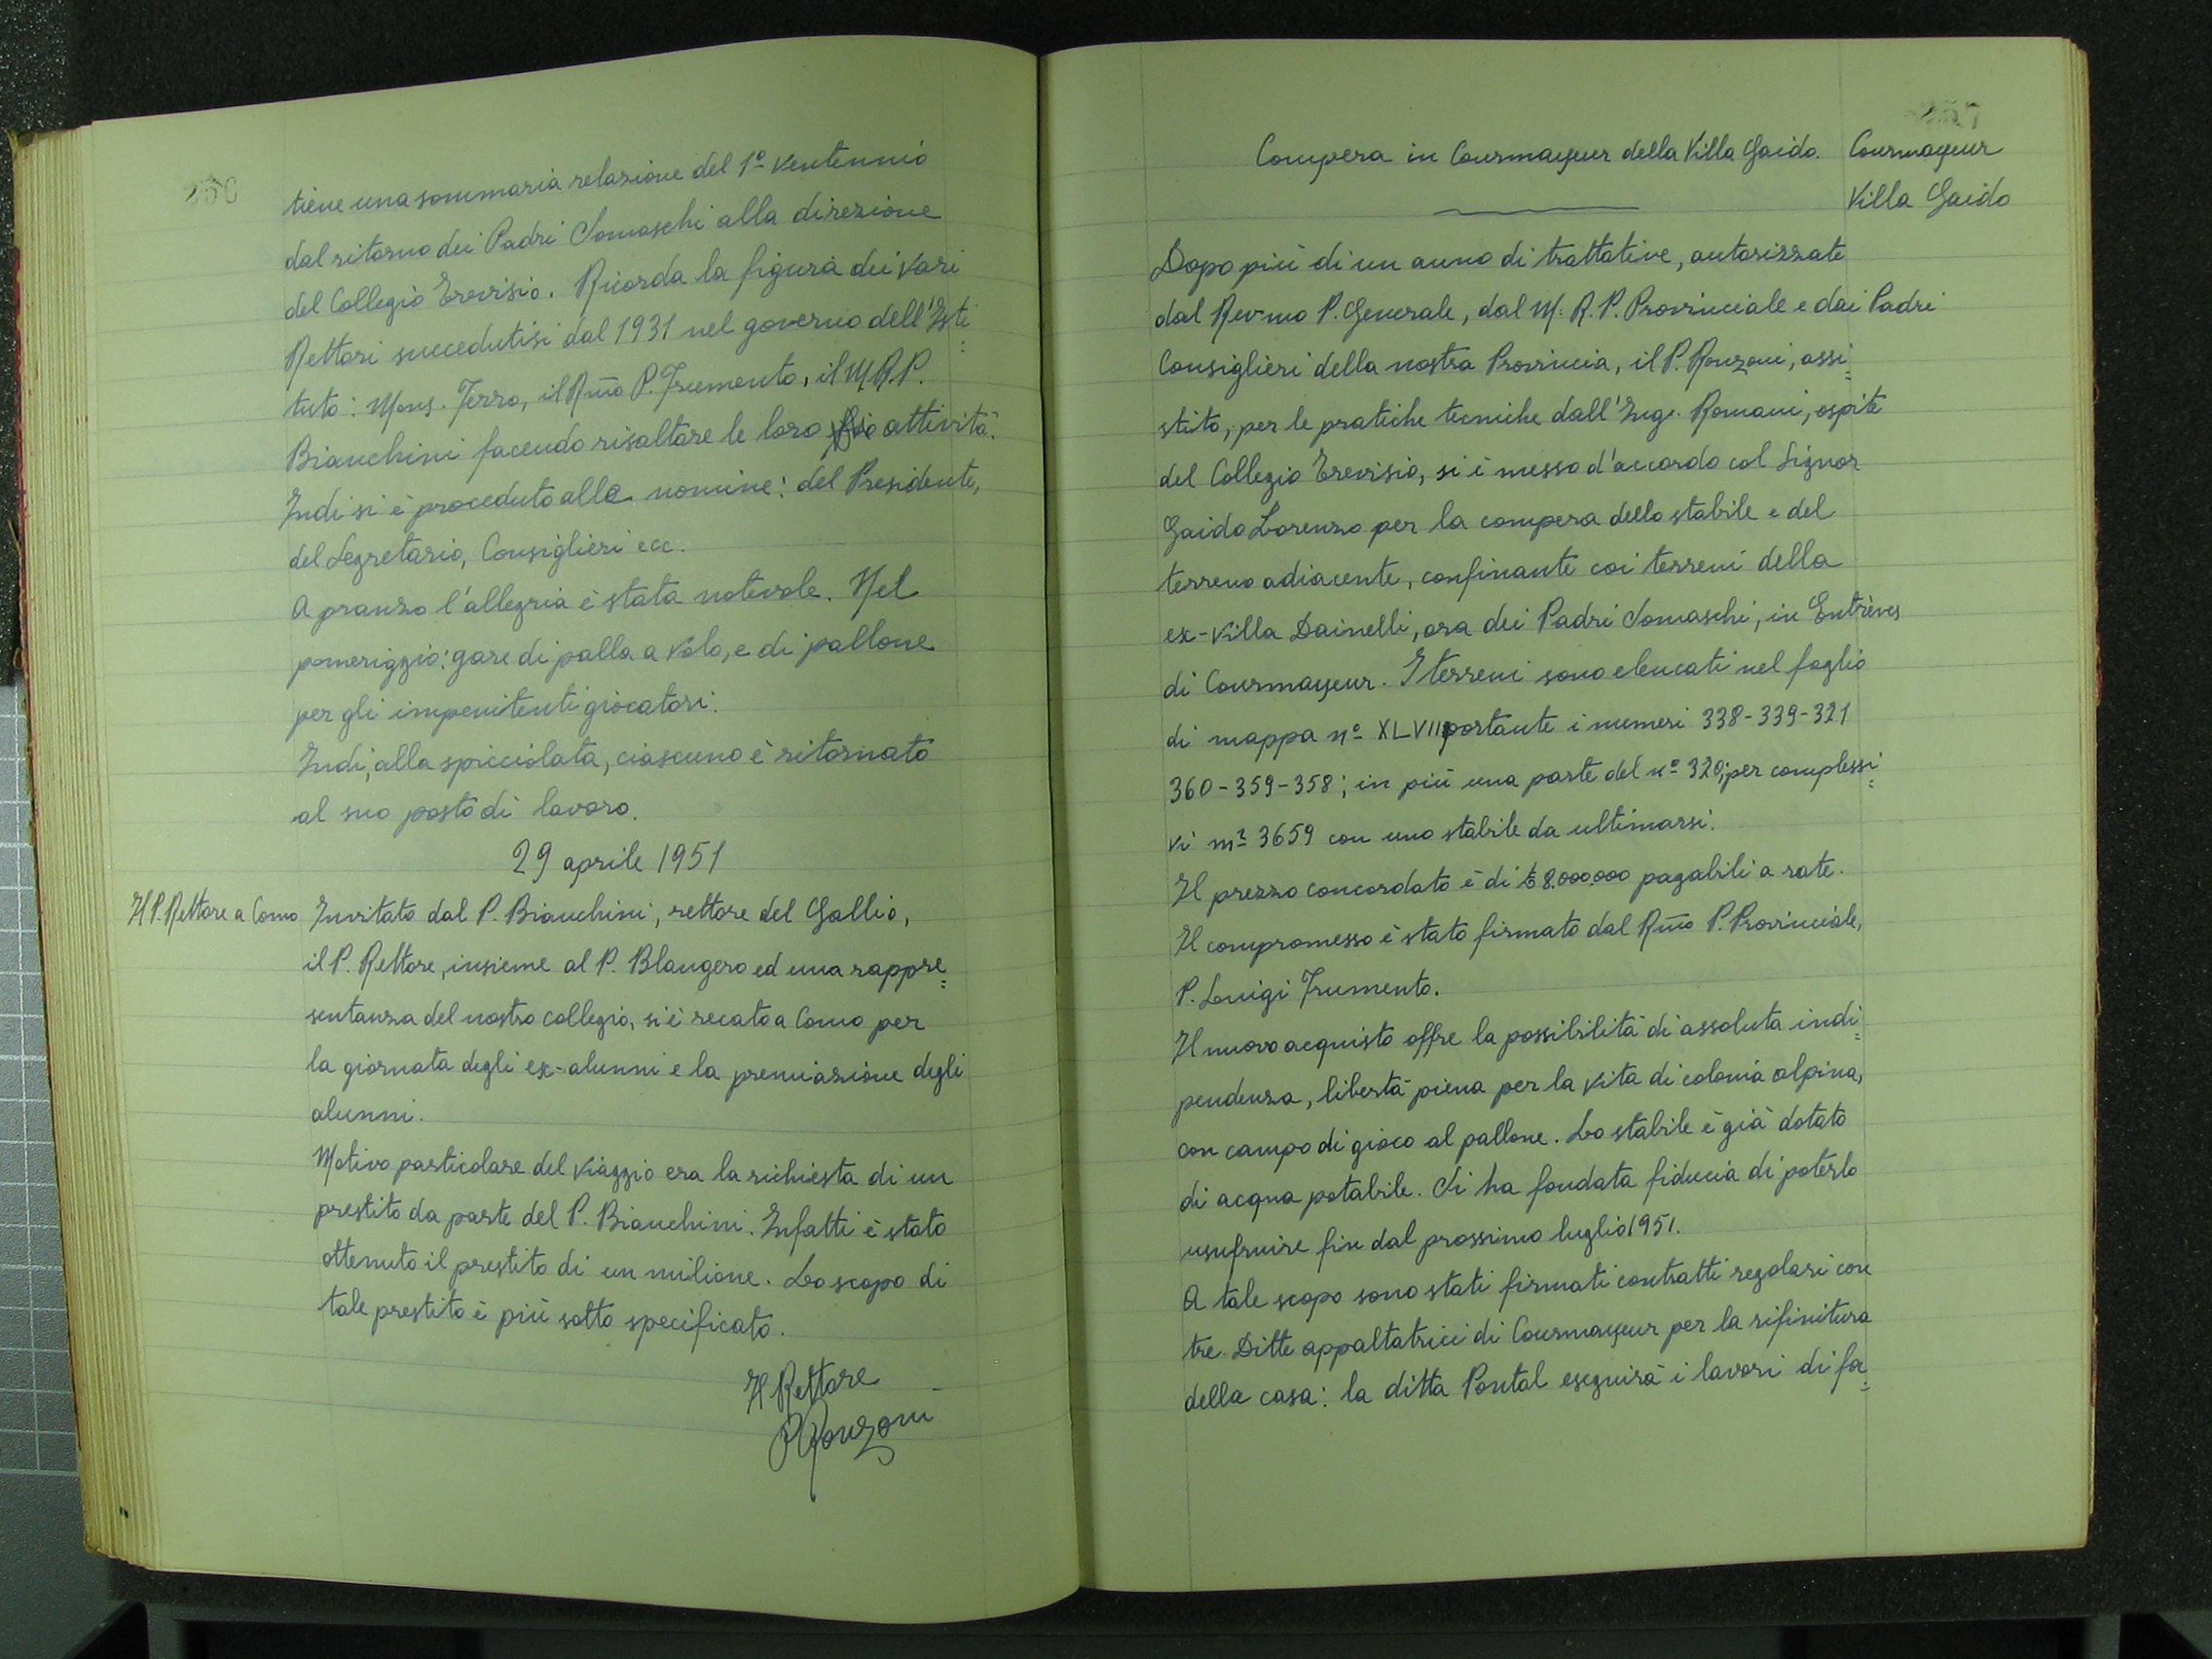 250
tiene una sommaria relazione del 1º ventennio
dal ritorno dei Padri Somaschi alla direzione
del Collegio Trevisio. Ricorda la figura dei vari
Rettori succedutisi dal 1931 nel governo dell'Isti=
tuto: Mons. Ferro, il Rmo P. Frumento, il M.R.P.
Bianchini facendo risaltare le loro attività.
Indi si è proceduto alle nomine: del Presidente,
del Segretario, Consiglieri ecc.
A pranzo l'allegria è stata notevole. Nel
pomeriggio: gare di palla a volo, e di pallone
per gli impenitenti giocatori.
Indi, alla spicciolata, ciascuno è ritornato
al suo posto di lavoro.
29 aprile 1951
Il P. Rettore a Como
Invitato dal P. Bianchini, rettore del Gallio,
il P. Rettore, insieme al P. Blangero ed una rappre=
sentanza del nostro collegio, si è recato a Como per
la giornata degli ex-alunni e la premiazione degli
alunni.
Motivo particolare del viaggio era la richiesta di un
prestito da parte del P. Bianchini. Infatti è stato
ottenuto il prestito di un milione. Lo scopo di
tale prestito è più sotto specificato.
Il Rettore
P Ronzoni
Compera in Courmayeur della Villa Gaido.
Courmayeur
Villa Gaido
Dopo più di un anno di trattative, autorizzate
dal Rev-mo P. Generale, dal M. R. P. Provinciale e dai Padri
Consiglieri della nostra Provincia, il P. Ronzoni, assi=
stito, per le pratiche tecniche dall'Ing. Romani, ospite
del Collegio Trevisio, si è messo d'accordo col Signor
Gaido Lorenzo per la compera dello stabile e del
terreno adiacente, confinante coi terreni della
ex-villa Dainelli, ora dei Padri Somaschi, in Entrèves
di Courmayeur. I terreni sono elencati nel foglio
di mappa nº XLVII portante i numeri 338-339-321
360-359-358; in più una parte del nº 320; per complessi=
vi m² 3659 con uno stabile da ultimarsi.
Il prezzo concordato è di £ 8.000.000 pagabili a rate.
Il compromesso è stato firmato dal Rmo P. Provinciale,
P. Luigi Frumento.
Il nuovo acquisto offre la possibilità di assoluta indi=
pendenza, libertà piena per la vita di colonia alpina,
con campo di gioco al pallone. Lo stabile è già dotato
di acqua potabile. Si ha fondata fiducia di poterlo
usufruire fin dal prossimo luglio 1951.
A tale scopo sono stati firmati contratti regolari con
tre Ditte appaltatrici di Courmayeur per la rifinitura
della casa: la ditta Pontal eseguirà i lavori di fa=